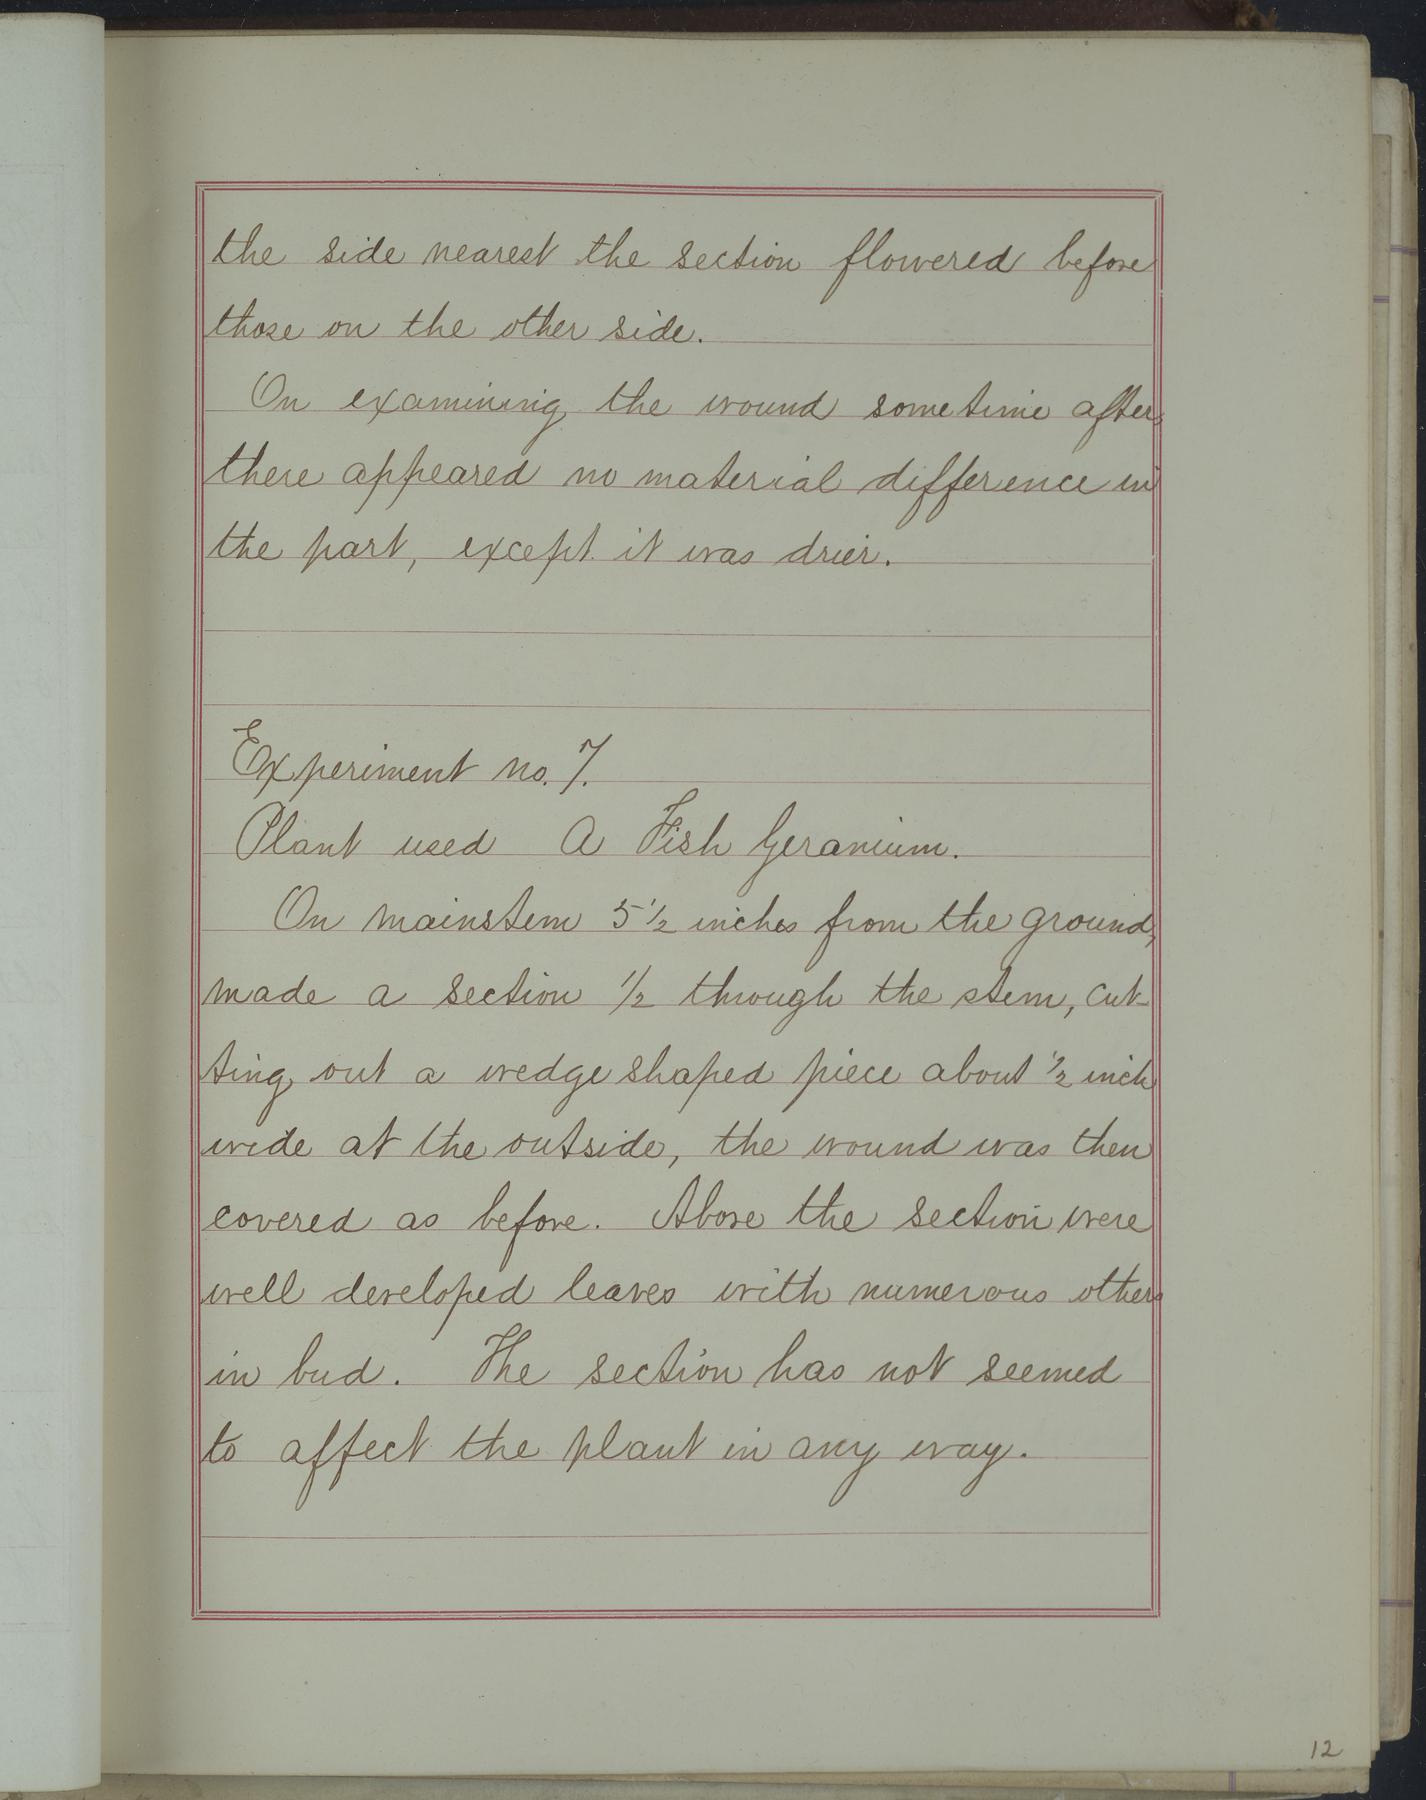 the side nearest the section flowered before
those on the other side.
On examining the wound sometime after,
there appeared no material difference in
the part, except it was drier.
Experiment no. 7.
Plant used A Fish Geranium.
On mainstem 5 1/2 inches from the ground,
made a section 1/2 through the stem, cut-
ting out a wedge shaped piece about 1/2 inch
wide at the outside, the wound was then
covered as before. Above the section were
well developed leaves with numerous others
in bud. The section has not seemed
to affect the plant in any way.
12